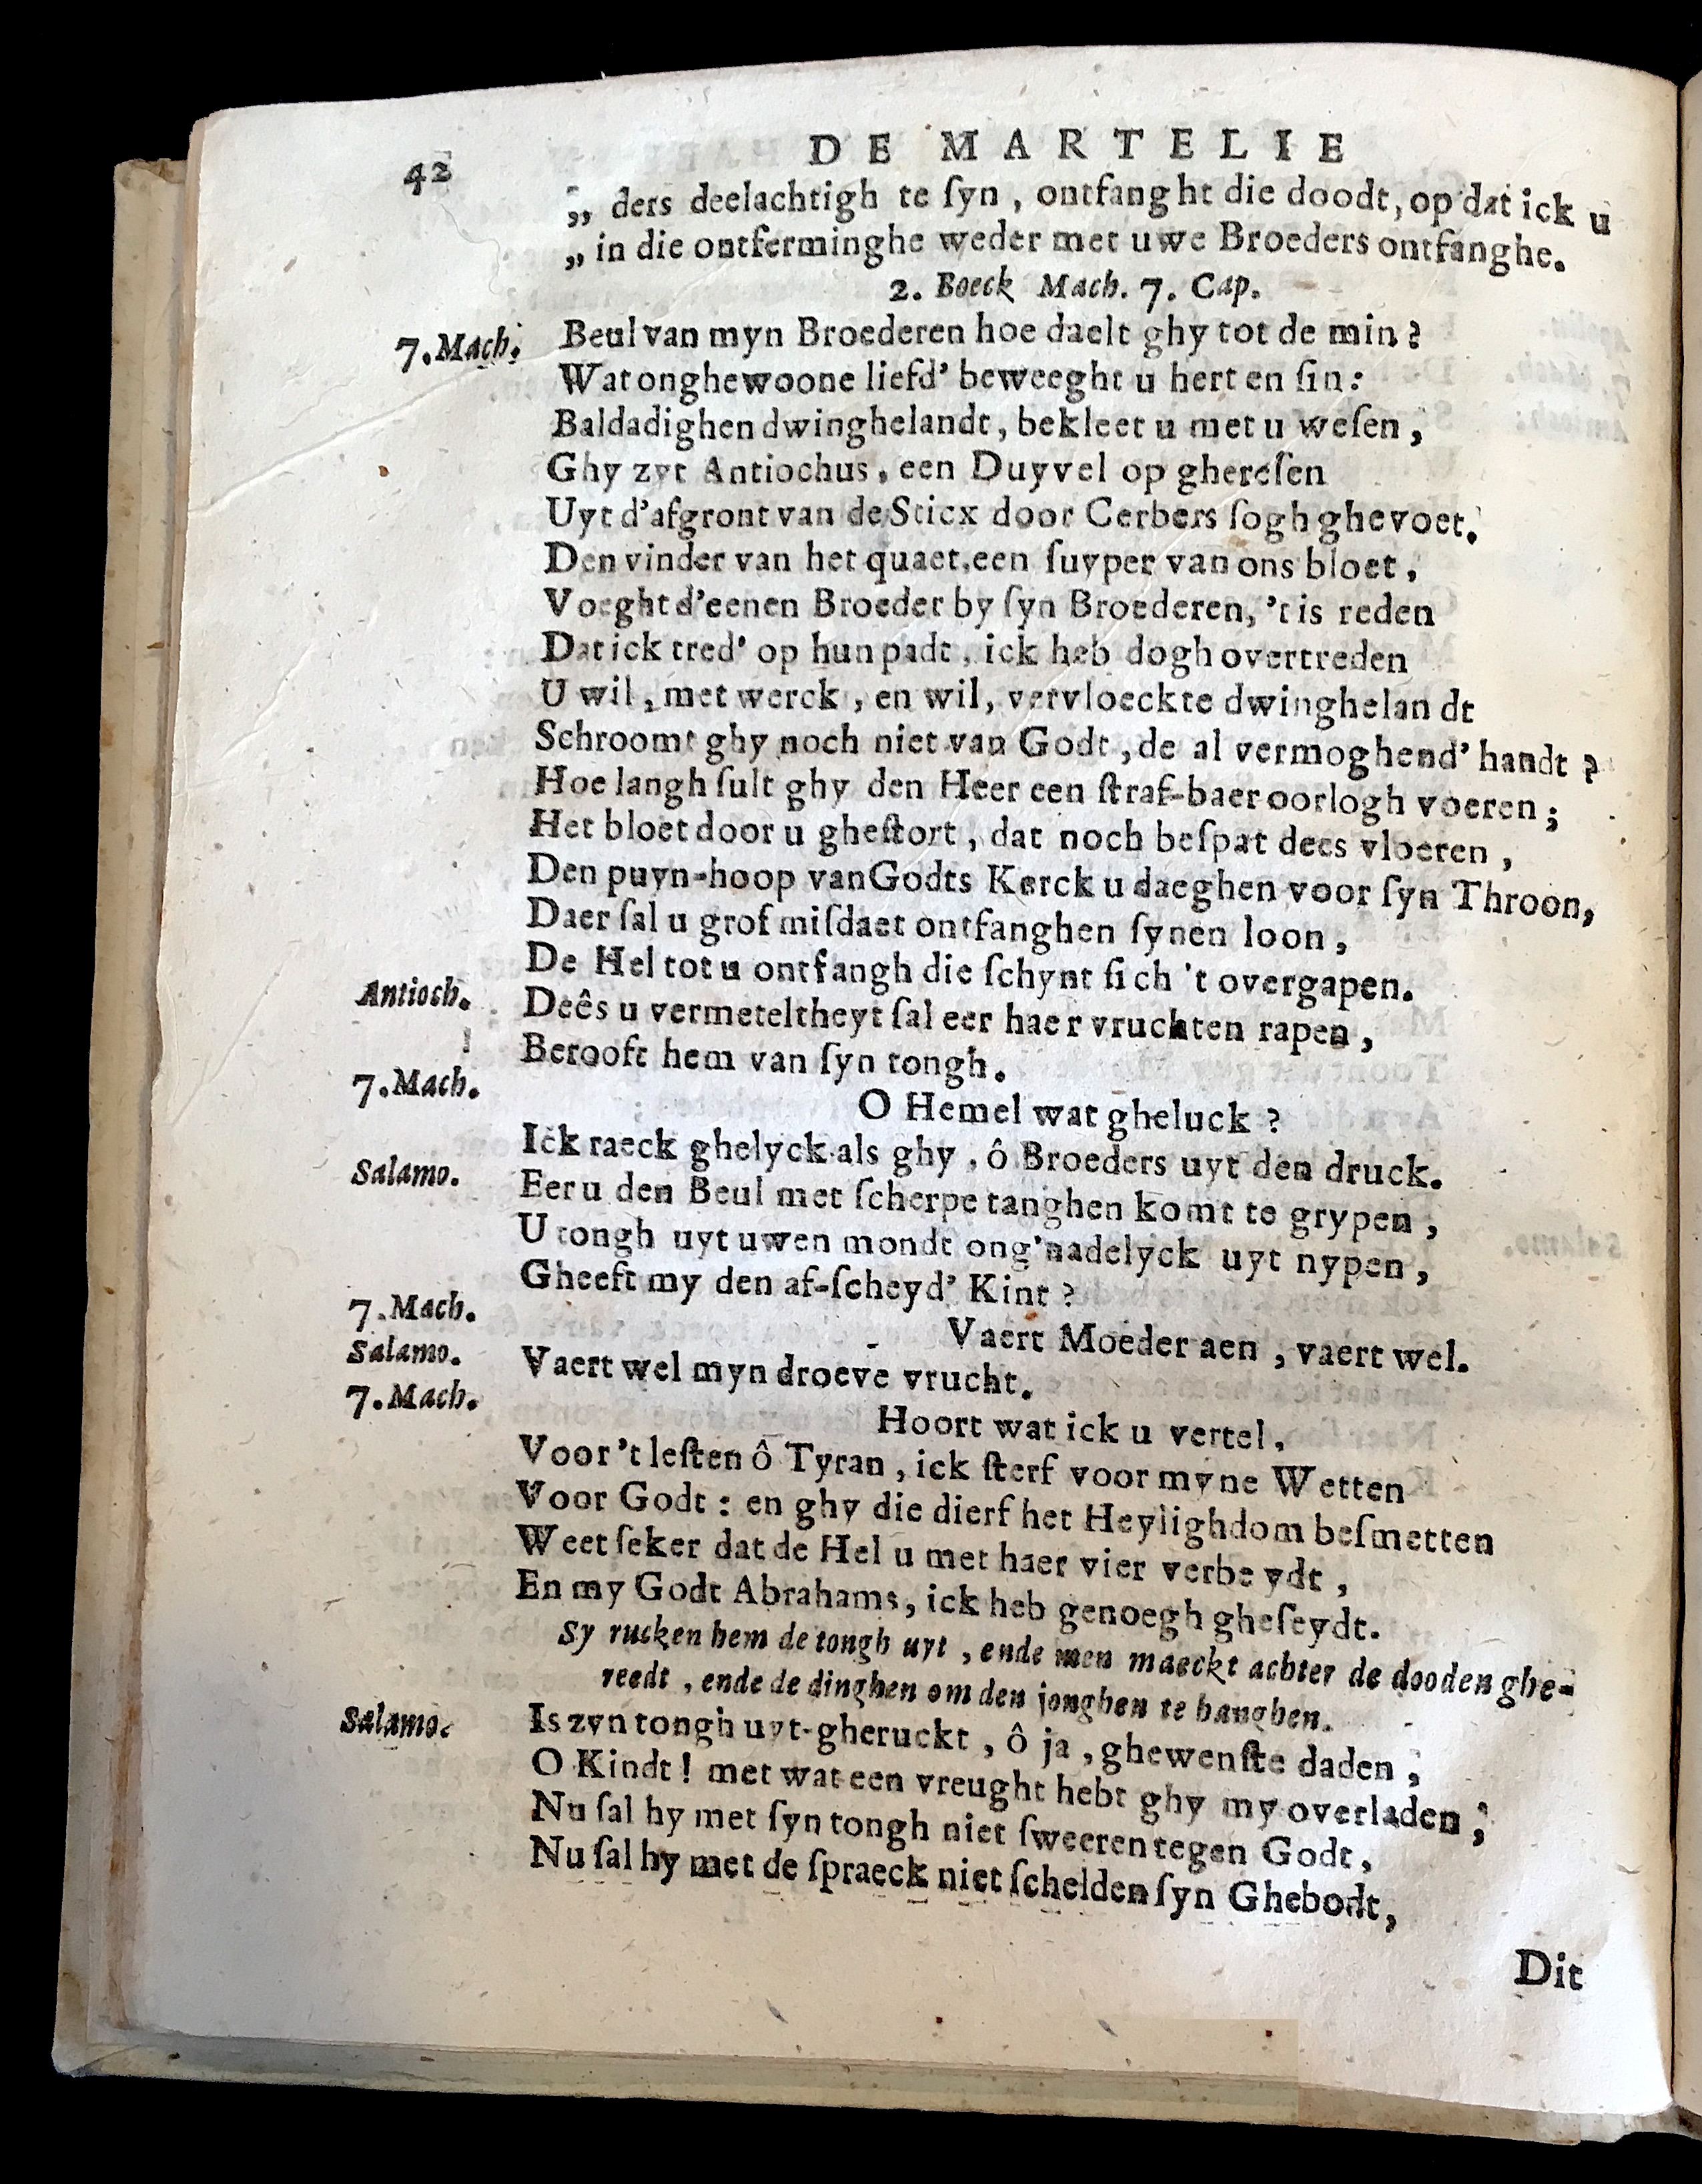 42
DE MARTELIE
„ ders deelachtigh te ſyn, ontfanght die doodt, op dat ick u
„ in die ontferminghe weder met uwe Broeders ontfanghe.
2. Boeck Mach. 7. Cap.
7. Mach. Beul van myn Broederen hoe daelt ghy tot de min?
Wat onghewoone liefd' beweeght u hert en ſin:
Baldadighen dwinghelandt, bekleet u met u weſen,
Ghy zyt Antiochus, een Duyvel op ghereſen
Uyt d'afgront van de Sticx door Cerbers ſogh ghevoet.
Den vinder van het quaet, een ſuyper van ons bloet,
Voeght d'eenen Broeder by ſyn Broederen, 't is reden
Dat ick tred' op hun padt, ick heb dogh overtreden
U wil, met werck, en wil, vervloeckte dwinghelandt
Schroomt ghy noch niet van Godt, de al vermoghend' handt?
Hoe langh ſult ghy den Heer een ſtraf-baer oorlogh voeren;
Het bloet door u gheſtort, dat noch beſpat dees vloeren,
Den puyn-hoop van Godts Kerck u daeghen voor ſyn Throon,
Daer ſal u grof miſdaet ontfanghen ſynen loon,
De Hel tot u ontfangh die ſchynt ſich 't overgapen.
Antioch. Deês u vermeteltheyt ſal eer haer vruchten rapen,
! Berooft hem van ſyn tongh.
7. Mach. O Hemel wat gheluck?
Ick raeck ghelyck als ghy, ô Broeders uyt den druck.
Salamo. Eer u den Beul met ſcherpe tanghen komt te grypen,
U tongh uyt uwen mondt ong'nadelyck uyt nypen,
Gheeft my den af-ſcheyd' Kint?
7. Mach. Vaert Moeder aen, vaert wel.
Salamo. Vaert wel myn droeve vrucht.
7. Mach. Hoort wat ick u vertel,
Voor 't leſten ô Tyran, ick ſterf voor myne Wetten
Voor Godt: en ghy die dierf het Heylighdom beſmetten
Weet ſeker dat de Hel u met haer vier verbeydt,
En my Godt Abrahams, ick heb genoegh gheſeydt.
Sy rucken hem de tongh uyt, ende men maeckt achter de dooden ghe-
reedt, ende de dinghen om den jonghen te hanghen.
Salamo. Is zyn tongh uyt-gheruckt, ô ja, ghewenſte daden;
O Kindt! met wat een vreught hebt ghy my overladen;
Nu ſal hy met ſyn tongh niet ſweeren tegen Godt,
Nu ſal hy met de ſpraeck niet ſchelden ſyn Ghebodt,
Dit